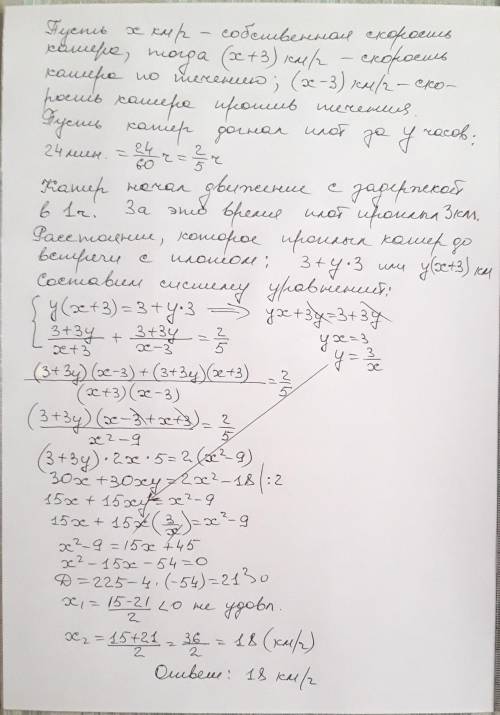 Пусть x км/ч – собственная скорость
катера, тогда (x+3) км/ч – скорость
катера по течению; (x-3) км/ч – ско-
рость катера против течения.
Пусть катер догнал плот за y часов:
24 мин. = 24/60 ч = 2/5 ч
Катер начал движение с задержкой
в 1ч. За это время плот проплыл 3км.
Расстояние, которое проплыл катер до
встречи с плотом: 3+y·3 или y(x+3) км
Составим систему уравнений:
{ y(x+3)=3+y·3 ⟹ yx+3y=3+3y
(3+3y)/(x+3) + (3+3y)/(x-3) = 2/5
yx=3
y=3/x
((3+3y)(x-3)+(3+3y)(x+3))/((x+3)(x-3)) = 2/5
(3+3y)(x-3+x+3)/(x²-9) = 2/5
(3+3y)·2x·5=2(x²-9)
30x+30xy=2x²-18 |:2
15x+15xy=x²-9
15x+15x(3/x)=x²-9
x²-9=15x+45
x²-15x-54=0
Д=225-4·(-54)=21²>0
x₁=(15-21)/2<0 не удовл.
x₂=(15+21)/2=36/2=18 (км/ч)
Ответ: 18 км/ч